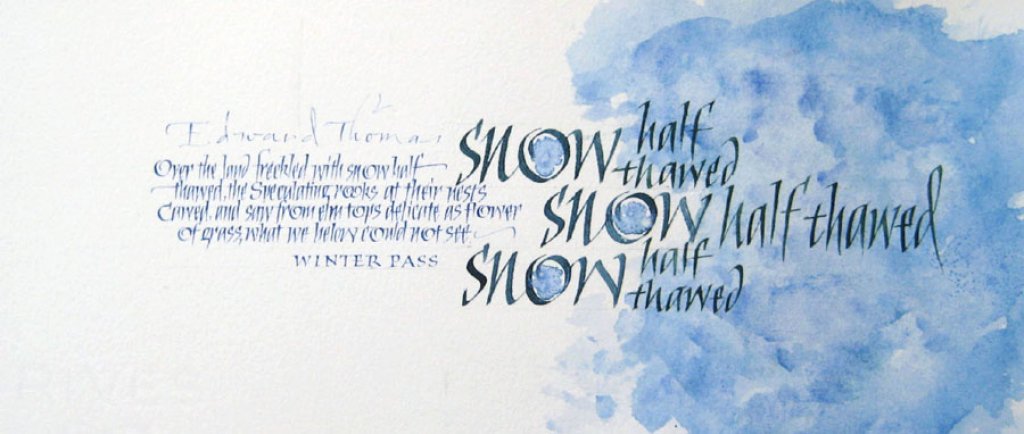 Edward Thomas
Over the land freckled with snow half
thawed, the Speculating rooks at their nests
Cawed, and saw from elm tops delicate as flower
of grass, what we below could not see
WINTER PASS
snow half thawed
snow half thawed
snow half thawed
RIVES